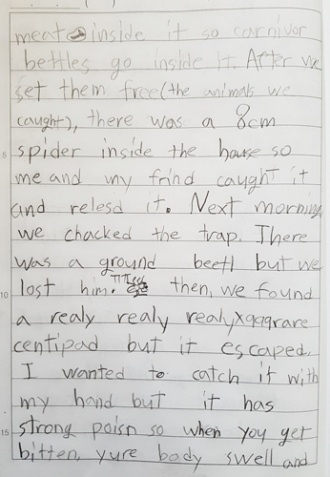 meat inside it so carnivor
bettles go inside it. After we
set them free(the animals we
caught), there was a 8cm
5 spider inside the house so
me and my frind caught it
and relesd it. Next morning
we chacked the trap. There
was a ground beetl but we
10 lost him. then, we found
a realy realy realy rare
centipad but it escaped.
I wanted to catch it with
my hand but it has
15 strong poisn so when you get
bitten, yure body swell and